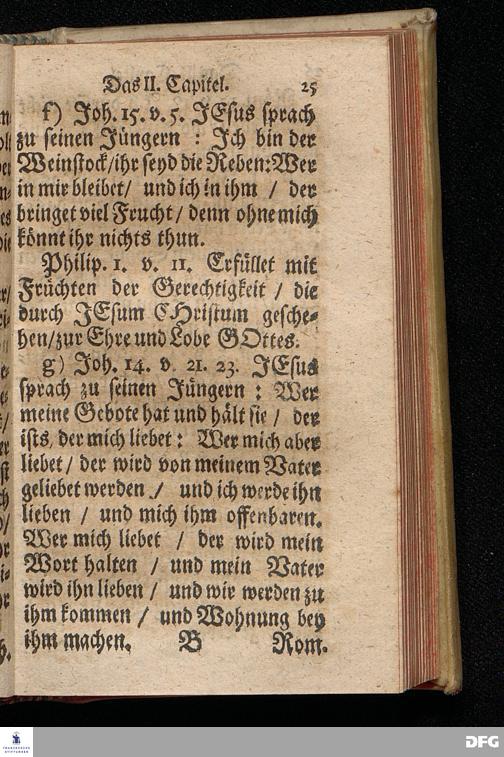 Das II. Capitel. 25
f) Joh. 15. v. 5. JEsus sprach
zu seinen Jüngern : Ich bin der
Weinstock/ihr seyd die Reben:Wer
in mir bleibet/ und ich in ihm / der
bringet viel Frucht / denn ohne mich
könnt ihr nichts thun.
Philip. 1. v. 11. Erfüllet mit
Früchten der Gerechtigkeit / die
durch JEsum CHristum gesche-
hen/zur Ehre und Lobe GOttes.
g) Joh. 14. v. 21. 23. JEsus
sprach zu seinen Jüngern : Wer
meine Gebote hat und hält sie / der
ists, der mich liebet : Wer mich aber
liebet / der wird von meinem Vater
geliebet werden / und ich werde ihn
lieben / und mich ihm offenbaren.
Wer mich liebet / der wird mein
Wort halten / und mein Vater
wird ihn lieben / und wir werden zu
ihm kommen / und Wohnung bey
ihm machen. B Rom.
FRANCKESCHE
STIFTUNGEN
DFG